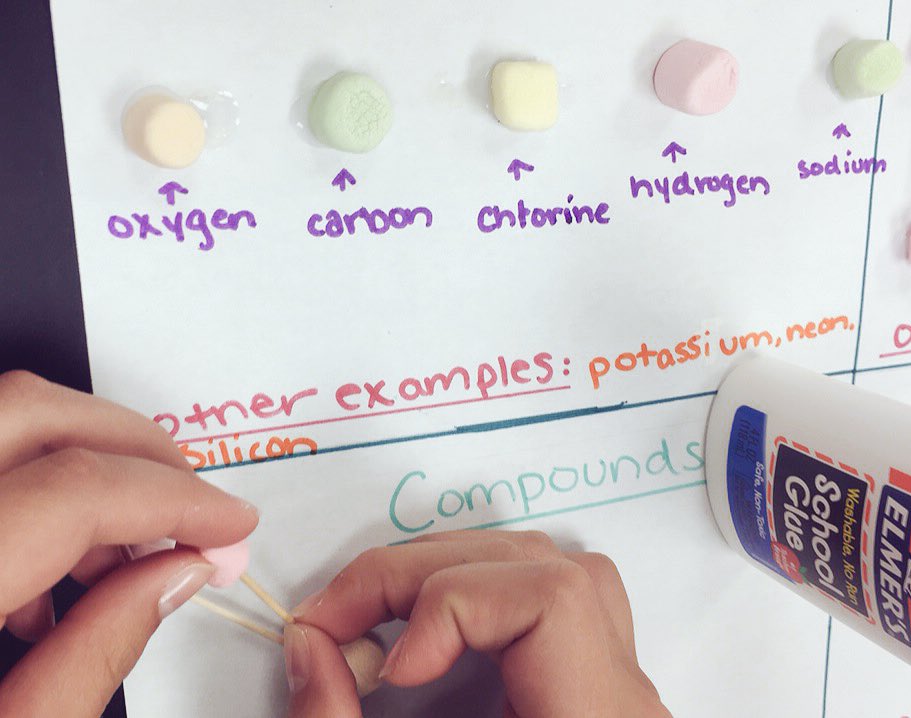 oxygen carbon chlorine hydrogen sodium
other examples: potassium, neon,
silicon
Compounds
ELMER'S
Washable, No Run
School
Glue
Safe, Non-Toxic